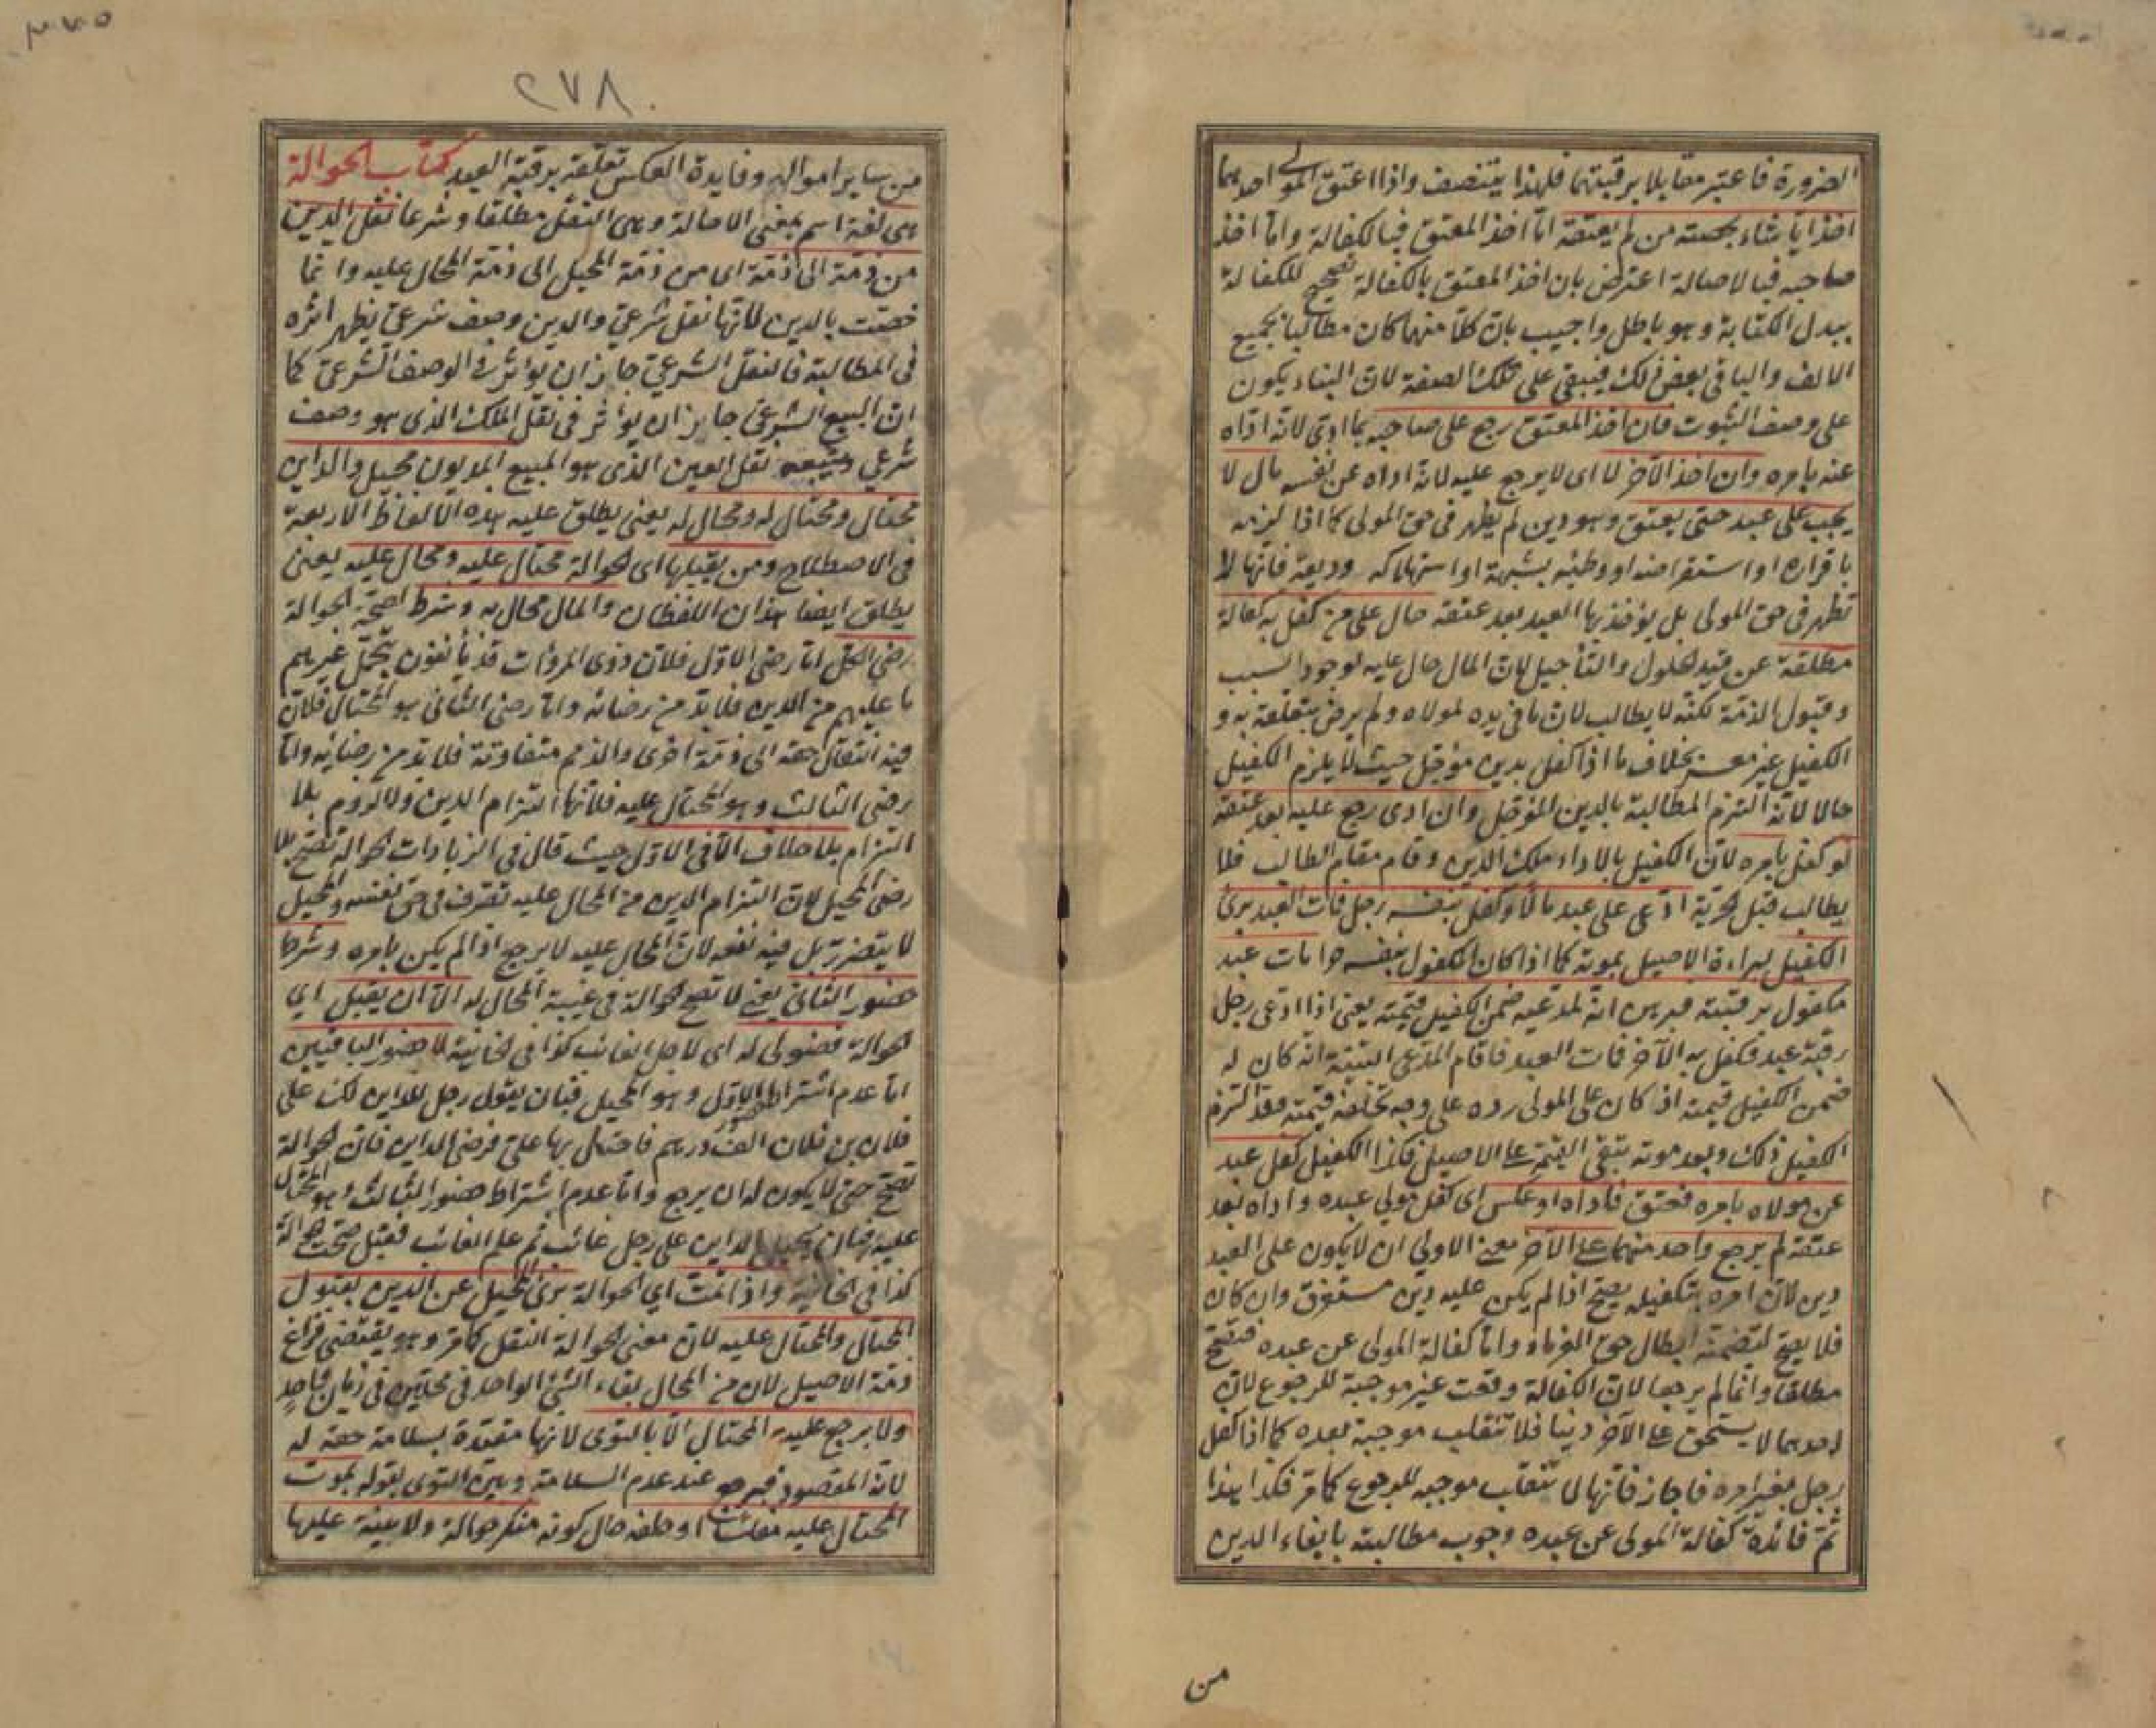 الضرورة فاعتبر مقابلا برقبتهما فلهذا يتنصف واذا اعتق المولى احدهما
اخذ ايا شاء بحصته من لم يعتقه اما اخذ المعتق فبالكفالة واما اخذ
صاحبه فبالاصالة اعترض بان اخذ المعتق بالكفالة تصحيح للكفالة
ببدل الكتابة وهو باطل واجيب بان كلا منهما كان مطالبا بجميع
الالف والباقي بعض ذلك فيبقى على تلك الصفة لان البقاء يكون
على وصف الثبوت فان اخذ المعتق رجع على صاحبه بما ادى لانه اداه
عنه بامره وان اخذ الآخر لا اى لا يرجع عليه لانه اداه عن نفسه مال لا
يجب على عبد حتى يعتق وهو دين لم يظهر في حق المولى كما اذا لزمه
باقراره او استقراضه او وطئه بشبهة او استهلاكه وديعة فانها لا
تظهر في حق المولى بل يؤخذ بها العبد بعد عتقه حال على من كفل به كفالة
مطلقة عن قيد الحلول والتأجيل لان المال حال عليه لوجود السبب
وقبول الذمة لكنه لا يطالب لان ما في يده لمولاه ولم يرض بتعلقه به و
الكفيل غير معسر بخلاف ما اذا كفل بدين مؤجل حيث لا يلزم الكفيل
حالا لانه التزم المطالبة بالدين المؤجل وان ادى رجع عليه بعد عتقه
لو كفل بامره لان الكفيل بالاداء ملك الدين وقام مقام الطالب فلا
يطالب قبل الحرية ادعى على عبد مالا وكفل بنفسه رجل فمات العبد برئ
الكفيل لبراءة الاصيل بموته كما اذا كان المكفول بنفسه حرا مات عبد
مكفول برقبته فبرهن انه لمدعيه ضمن الكفيل قيمته يعنى اذا ادعى رجل
رقبة عبد فكفل به الآخر فمات العبد فاقام المدعى البينة انه كان له
ضمن الكفيل قيمته اذ كان على المولى رده على وجه تخلفه قيمته وقد التزم
الكفيل ذلك وبعد موته تبقى القيمة على الاصيل فكذا الكفيل كفل عبد
عن مولاه بامره فعتق فاداه او عكس اى كفل مولى عبده واداه بعد
عتقه لم يرجع واحد منهما على الآخر معنى الاولى ان لا يكون على العبد
دين لان امره بتكفيله يصح اذا لم يكن عليه دين مستغرق وان كان
فلا يصح لتضمنه ابطال حق الغرماء واما كفالة المولى عن عبده فتصح
مطلقا وانما لم يرجعا لان الكفالة وقعت غير موجبة للرجوع لان
احدهما لا يستحق على الآخر دينا فلا تنقلب موجبة بعده كما اذا كفل
رجل بغير امره فاجاز فانها لا تنقلب موجبه للرجوع كما مر فكذا هذا
ثم فائدة كفالة المولى عن عبده وجوب مطالبته بايفاء الدين
من
٢٧٨
من سائر امواله وفايدة العكس تعلقه برقبة العبد كتاب الحوالة
هى لغة اسم بمعنى الاحالة وهى النقل مطلقا وشرعا نقل الدين
من ذمة الى ذمة اى من ذمة المحيل الى ذمة المحال عليه وانما
خصت بالدين لانها نقل شرعى والدين وصف شرعى يظهر اثره
فى المطالبة فالنقل الشرعى جاز ان يؤثر في الوصف الشرعى كما
ان البيع الشرعى جاز ان يؤثر فى نقل الملك الذى هو وصف
شرعي ويتبعه نقل العين الذى هو المبيع المديون محيل والداين
محتال ومحتال له ومحال له يعنى يطلق عليه هذه الالفاظ الاربعة
فى الاصطلاح ومن يقبلها اى الحوالة محتال عليه ومحال عليه يعنى
يطلق ايضا هذان اللفظان والمال محال به وشرط لصحة الحوالة
رضى الكل اما رضى الاول فلان ذوى المروات قد يأنفون تحمل غيرهم
ما عليهم من الدين فلا بد من رضائه واما رضى الثانى هو المحتال فلان
فيه انتقال حقه الى ذمة اخرى والذمم متفاوتة فلا بد من رضائه واما
رضى الثالث وهو المحتال عليه فلانها التزام الدين ولا لزوم بلا
التزام بلا خلاف الا فى الاول حيث قال فى الزيادات الحوالة تصح بلا
رضى المحيل لان التزام الدين من المحال عليه تصرف فى حق نفسه والمحيل
لا يتضرر بل فيه نفعه لان المحال عليه لا يرجع اذا لم يكن بامره وشرط
حضور الثانى يعنى لا تصح الحوالة فى غيبة المحال له الا ان يقبل اي
الحوالة فضولى له اى لاجل الغائب كذا فى الخانية لا حضور الباقيين
اما عدم اشتراط حضور الاول وهو المحيل فبان يقول رجل للداين لك على
فلان بن فلان الف درهم فاحتال بها على فرضى الداين فان الحوالة
تصح حتى لا يكون له ان يرجع واما عدم اشتراط حضور الثالث وهو المحتال
عليه فبان يحيل الداين على رجل غائب ثم علم الغائب فقبل صحت الحوالة
كذا فى الخانية واذا تمت اي الحوالة برئ المحيل عن الدين بقبول
المحتال والمحتال عليه لان معنى الحوالة النقل كما مر وهو يقتضى فراغ
ذمة الاصيل لان من المحال بقاء الشئ الواحد فى محلين فى زمان واحد
ولا يرجع عليه المحتال الا بالتوى لانها مقيدة بسلامة حقه له
لانه المقصود فيرجع عند عدم السلامة وبين التوى بقوله بموت
المحتال عليه مفلسا او حلفه حال كونه منكر حوالة ولا بينة عليها